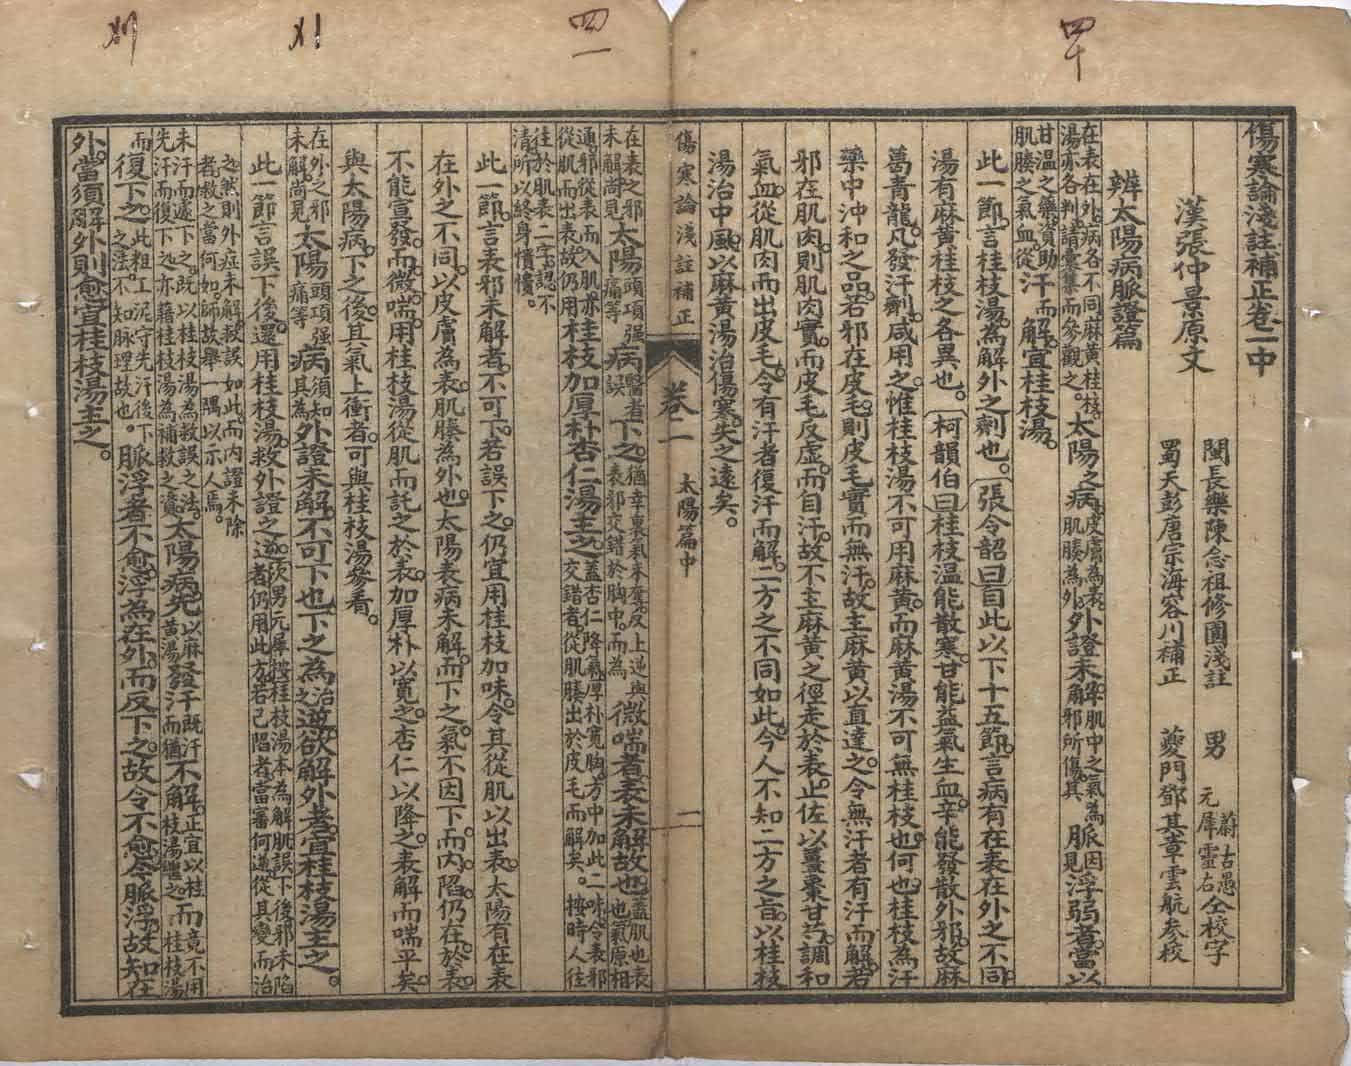 四十
傷寒論淺註補正卷一中
漢張仲景原文
閩長樂陳念祖修園淺註
男
元犀靈石
蔚古愚
仝校字
蜀天彭唐宗海容川補正
夔門鄧其章雲航參校
辨太陽病脈證篇
在表在外病各不同麻黃桂枝湯亦各判請彙集而參觀之。太陽之病皮膚為表肌腠為外外證未解肌中之氣為邪所傷其脈因見浮弱者當以
甘溫之藥資助肌腠之氣血從汗而解宜桂枝湯。
此一節言桂枝湯為解外之劑也。張令韶曰自此以下十五節言病有在表在外之不同
湯有麻黃桂枝之各異也。柯韻伯曰桂枝溫能散寒甘能益氣生血辛能發散外邪故麻
葛青龍凡發汗劑咸用之惟桂枝湯不可用麻黃而麻黃湯不可無桂枝也何也桂枝為汗
藥中沖和之品若邪在皮毛則皮毛實而無汗故主麻黃以直達之令無汗者有汗而解若
邪在肌肉則肌肉實而皮毛反虛而自汗故不主麻黃之徑走於表止佐以薑棗甘芍調和
氣血從肌肉而出皮毛令有汗者復汗而解二方之不同如此今人不知二方之旨以桂枝
湯治中風以麻黃湯治傷寒失之遠矣。
傷寒論淺註補正
卷二
太陽篇中
一
四一
在表之邪未解尚見太陽頭項強痛等病醫者誤下之猶幸裏氣未奪反上逆與表邪交錯於胸中而為微喘者表未解故也蓋肌也表也氣原相
通邪從表而入肌亦從肌而出表故仍用桂枝加厚朴杏仁湯主之蓋杏仁降氣厚朴寬胸方中加此二味令表邪交錯者從肌腠出於皮毛而解矣。按時人往
往於肌表二字認不清所以終身憒憒。
此一節言表邪未解者不可下若誤下之仍宜用桂枝加味令其從肌以出表太陽有在表
在外之不同以皮膚為表肌腠為外也太陽表病未解而下之氣不因下而內陷仍在於表
不能宣發而微喘用桂枝湯從肌而託之於表加厚朴以寬之杏仁以降之表解而喘平矣
與太陽病下之後其氣上衝者可與桂枝湯參看。
在外之邪未解尚見太陽頭項強痛等病須知其為外證未解不可下也下之為治之逆欲解外者宜桂枝湯主之。
此一節言誤下後還用桂枝湯救外證之逆次男元犀按桂枝湯本為解肌誤下後邪未陷者仍用此方若已陷者當審何逆從其變而治
之然則外症未解救誤如此而內證未除者救之當何如師故舉一隅以示人焉。
未汗而遽下之既以桂枝湯為救誤之法先汗而復下之亦藉桂枝湯為補救之資太陽病先以麻黃湯發汗既汗而猶不解正宜以桂枝湯繼之而竟不用桂枝湯
而復下之此粗工泥守先汗後下之法不知脈理故也。脈浮者不愈浮為在外而反下之故令不愈今脈浮故知在
外當須解外則愈宜桂枝湯主之。